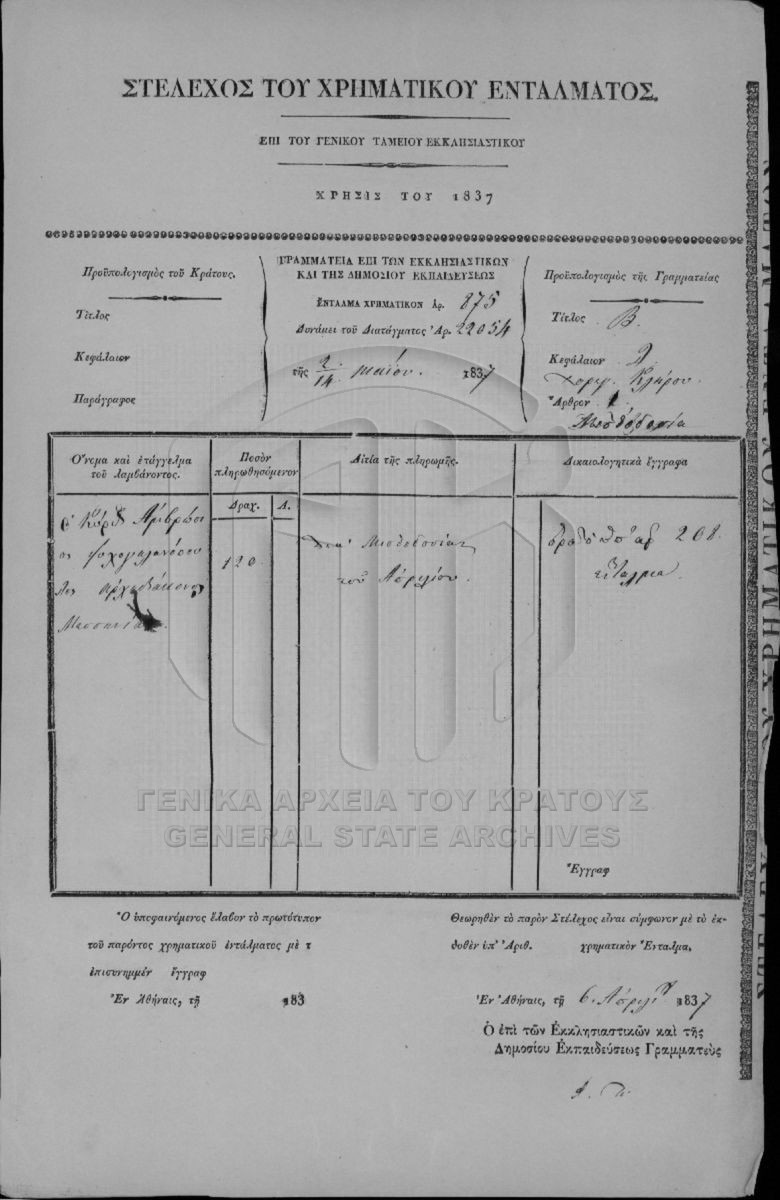 ΣΤΕΛΕΧΟΣ ΤΟΥ ΧΡΗΜΑΤΙΚΟΥ ΕΝΤΑΛΜΑΤΟΣ.
ΕΠΙ ΤΟΥ ΓΕΝΙΚΟΥ ΤΑΜΕΙΟΥ ΕΚΚΛΗΣΙΑΣΤΙΚΟΥ
ΧΡΗΣΙΣ ΤΟΥ 1837
Προϋπολογισμὸς τοῦ Κράτους.
Τίτλος
Κεφάλαιον
Παράγραφος
ΓΡΑΜΜΑΤΕΙΑ ΕΠΙ ΤΩΝ ΕΚΚΛΗΣΙΑΣΤΙΚΩΝ
ΚΑΙ ΤΗΣ ΔΗΜΟΣΙΟΥ ΕΚΠΑΙΔΕΥΣΕΩΣ
ΕΝΤΑΛΜΑ ΧΡΗΜΑΤΙΚΟΝ Ἀρ. 875
Δυνάμει τοῦ Διατάγματος Ἀρ. 22054
τῆς 2/14 Μαΐου. 1837
Προϋπολογισμὸς τῆς Γραμματείας
Τίτλος Β.
Κεφάλαιον 2
Κλήρου.
Ἄρθρον 1
Μισθοδοσία
Ὄνομα καὶ ἐπάγγελμα
τοῦ λαμβάνοντος.
Ποσὸν
πληρωθησόμενον
Αἰτία τῆς πληρωμῆς.
Δικαιολογητικὰ ἔγγραφα
Δραχ. Λ.
Ἀμβρόσι
ος
Μεσσηνίας.
120
Μισθοδοσίαν
τοῦ Ἀπριλίου.
ὑπ' ἀρ 208.
ἔνταλμα.
Ἔγγραφ
Ὁ ὑποφαινόμενος ἔλαβον τὸ πρωτότυπον
τοῦ παρόντος χρηματικοῦ ἐντάλματος μὲ τ
ἐπισυνημμέν ἔγγραφ
Ἐν Ἀθήναις, τῇ 183
Θεωρηθὲν τὸ παρὸν Στέλεχος εἶναι σύμφωνον μὲ τὸ ἐκ-
δοθὲν ὑπ' Ἀριθ. χρηματικὸν Ἔνταλμα.
Ἐν Ἀθήναις, τῇ 6. Ἀπριλί 1837
Ὁ ἐπὶ τῶν Ἐκκλησιαστικῶν καὶ τῆς
Δημοσίου Ἐκπαιδεύσεως Γραμματεὺς
ΓΕΝΙΚΑ ΑΡΧΕΙΑ ΤΟΥ ΚΡΑΤΟΥΣ
GENERAL STATE ARCHIVES